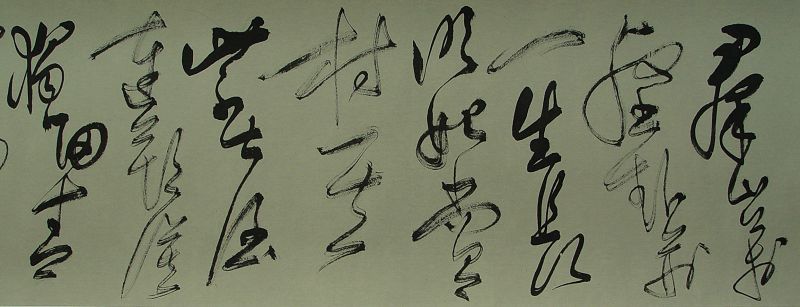 群山萬
壑赴荊
門生長
明妃尚有
村一去
紫臺
連朔漠
獨留青